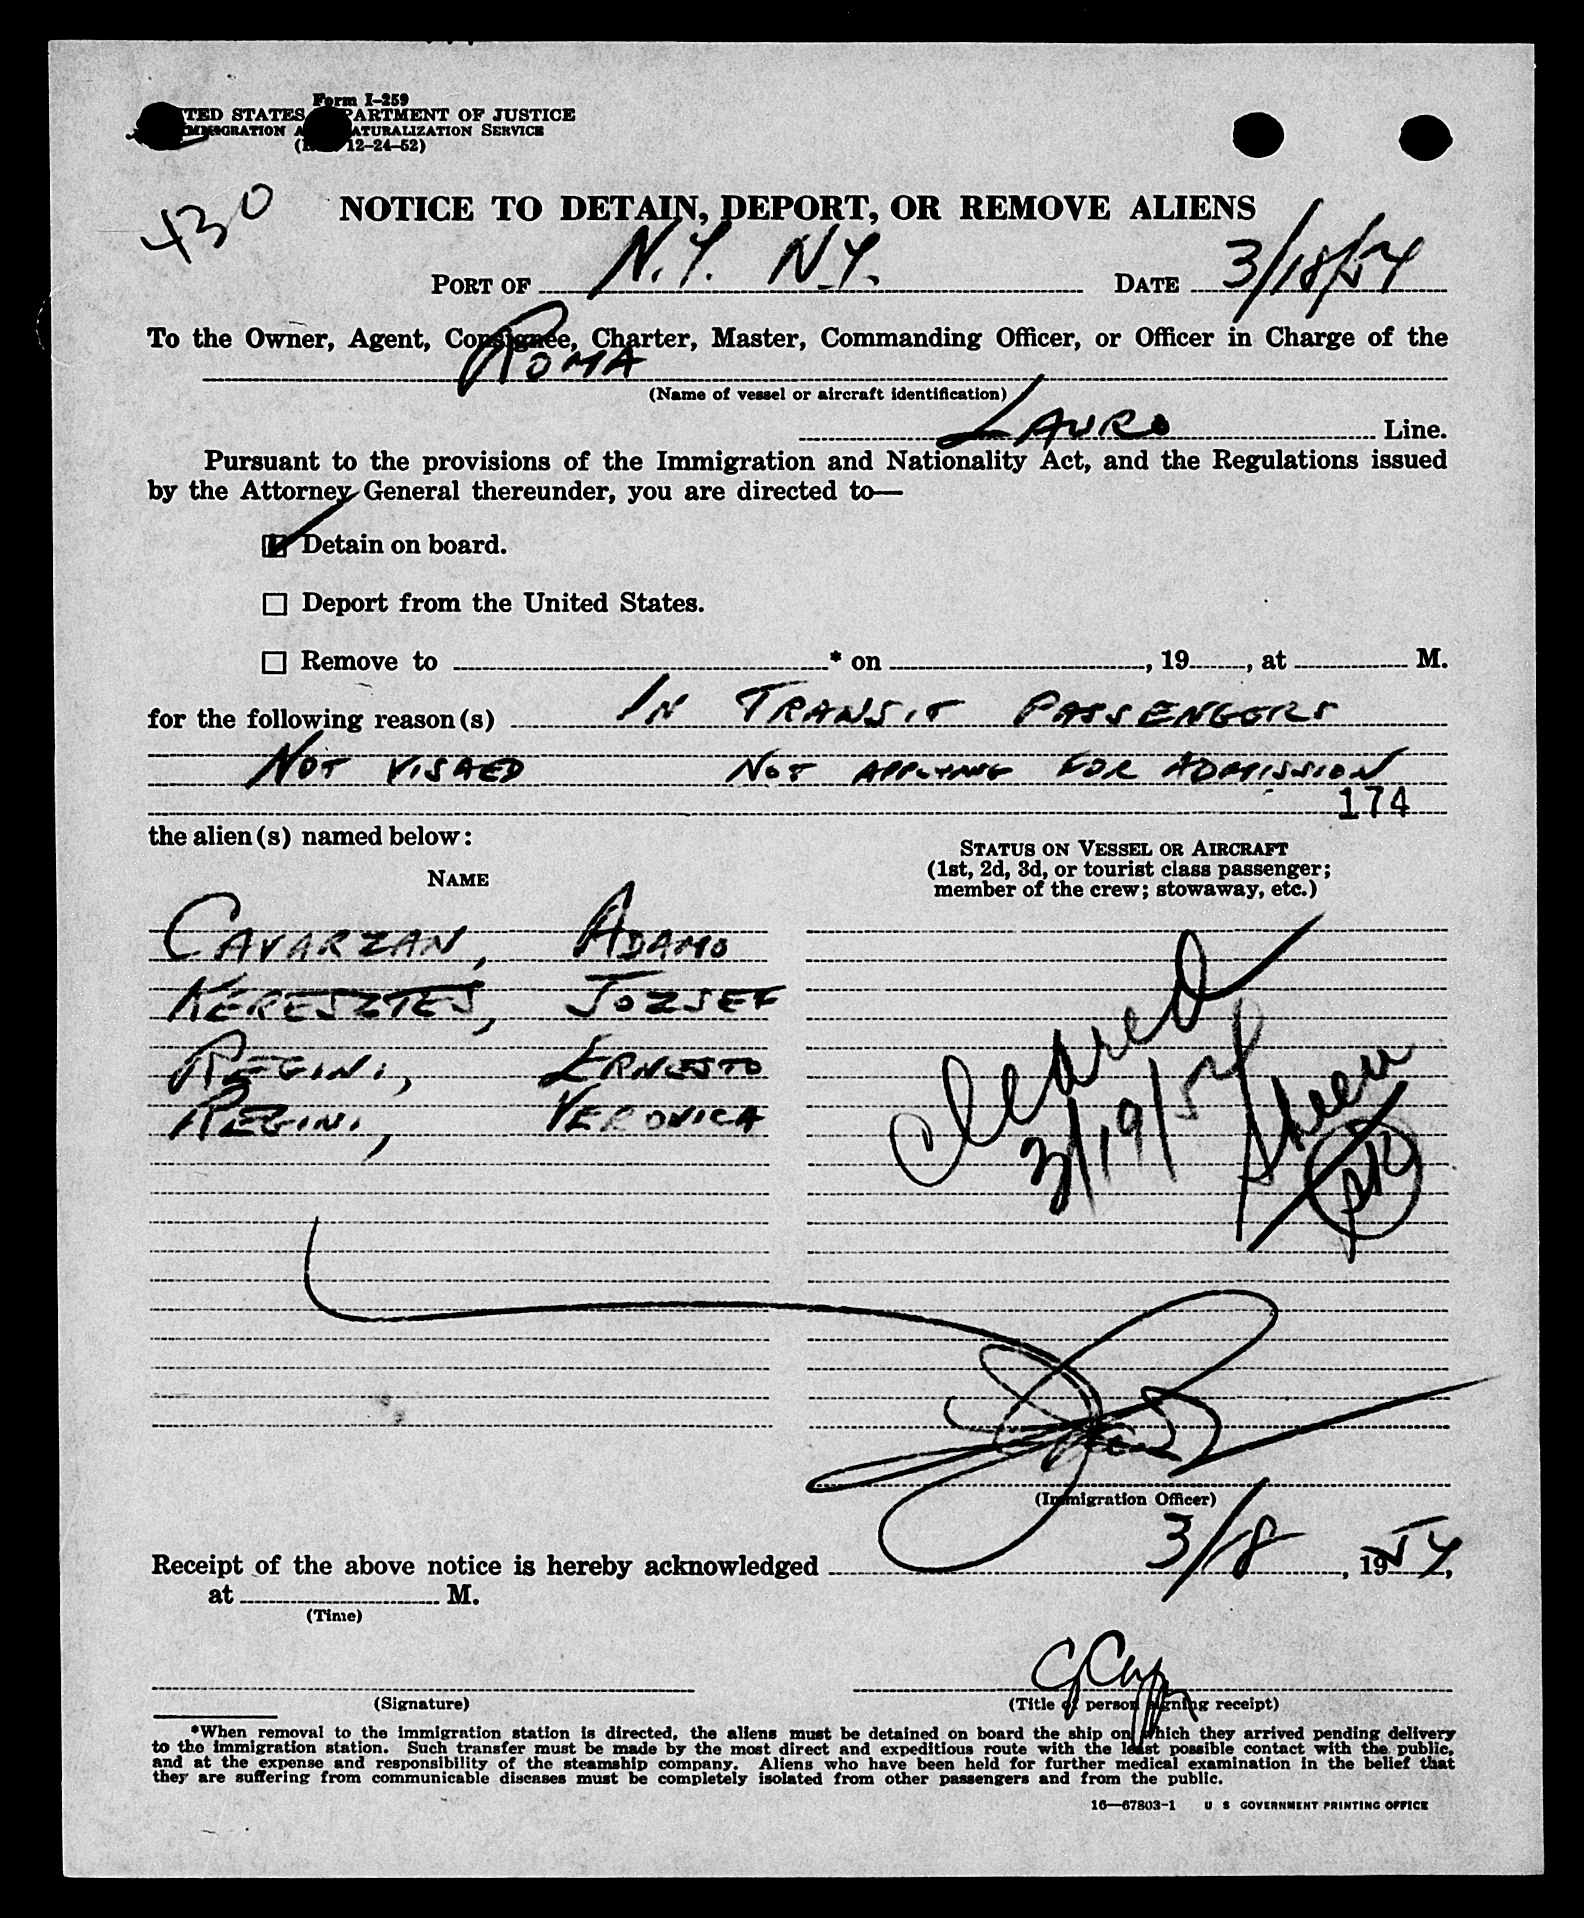 Form I-259
TED STATES PARTMENT OF JUSTICE
MMIGRATION A ATURALIZATION SERVICE
12-24-52)
430
NOTICE TO DETAIN, DEPORT, OR REMOVE ALIENS
PORT OF N.Y. N.Y. DATE 3/18/54
To the Owner, Agent, Consignee, Charter, Master, Commanding Officer, or Officer in Charge of the
ROMA
(Name of vessel or aircraft identification)
LAURO Line.
Pursuant to the provisions of the Immigration and Nationality Act, and the Regulations issued
by the Attorney General thereunder, you are directed to—
Detain on board.
Deport from the United States.
Remove to * on , 19 , at M.
for the following reason(s) IN TRANSIT PASSENGERS
NOT VISAED NOT APPLYING FOR ADMISSION
174
the alien(s) named below:
STATUS ON VESSEL OR AIRCRAFT
(1st, 2d, 3d, or tourist class passenger;
member of the crew; stowaway, etc.)
NAME
CAVARZAN, ADAMO
KERESZTES, JOZSEF
REGINI, ERNESTO
REGINI, VEROVICA
Cleared
3/19/54
(Immigration Officer)
Receipt of the above notice is hereby acknowledged 3/18, 1954,
at M.
(Time)
(Signature)
(Title of person signing receipt)
*When removal to the immigration station is directed, the aliens must be detained on board the ship on which they arrived pending delivery
to the immigration station. Such transfer must be made by the most direct and expeditious route with the least possible contact with the public,
and at the expense and responsibility of the steamship company. Aliens who have been held for further medical examination in the belief that
they are suffering from communicable diseases must be completely isolated from other passengers and from the public.
16—67803-1 U S GOVERNMENT PRINTING OFFICE